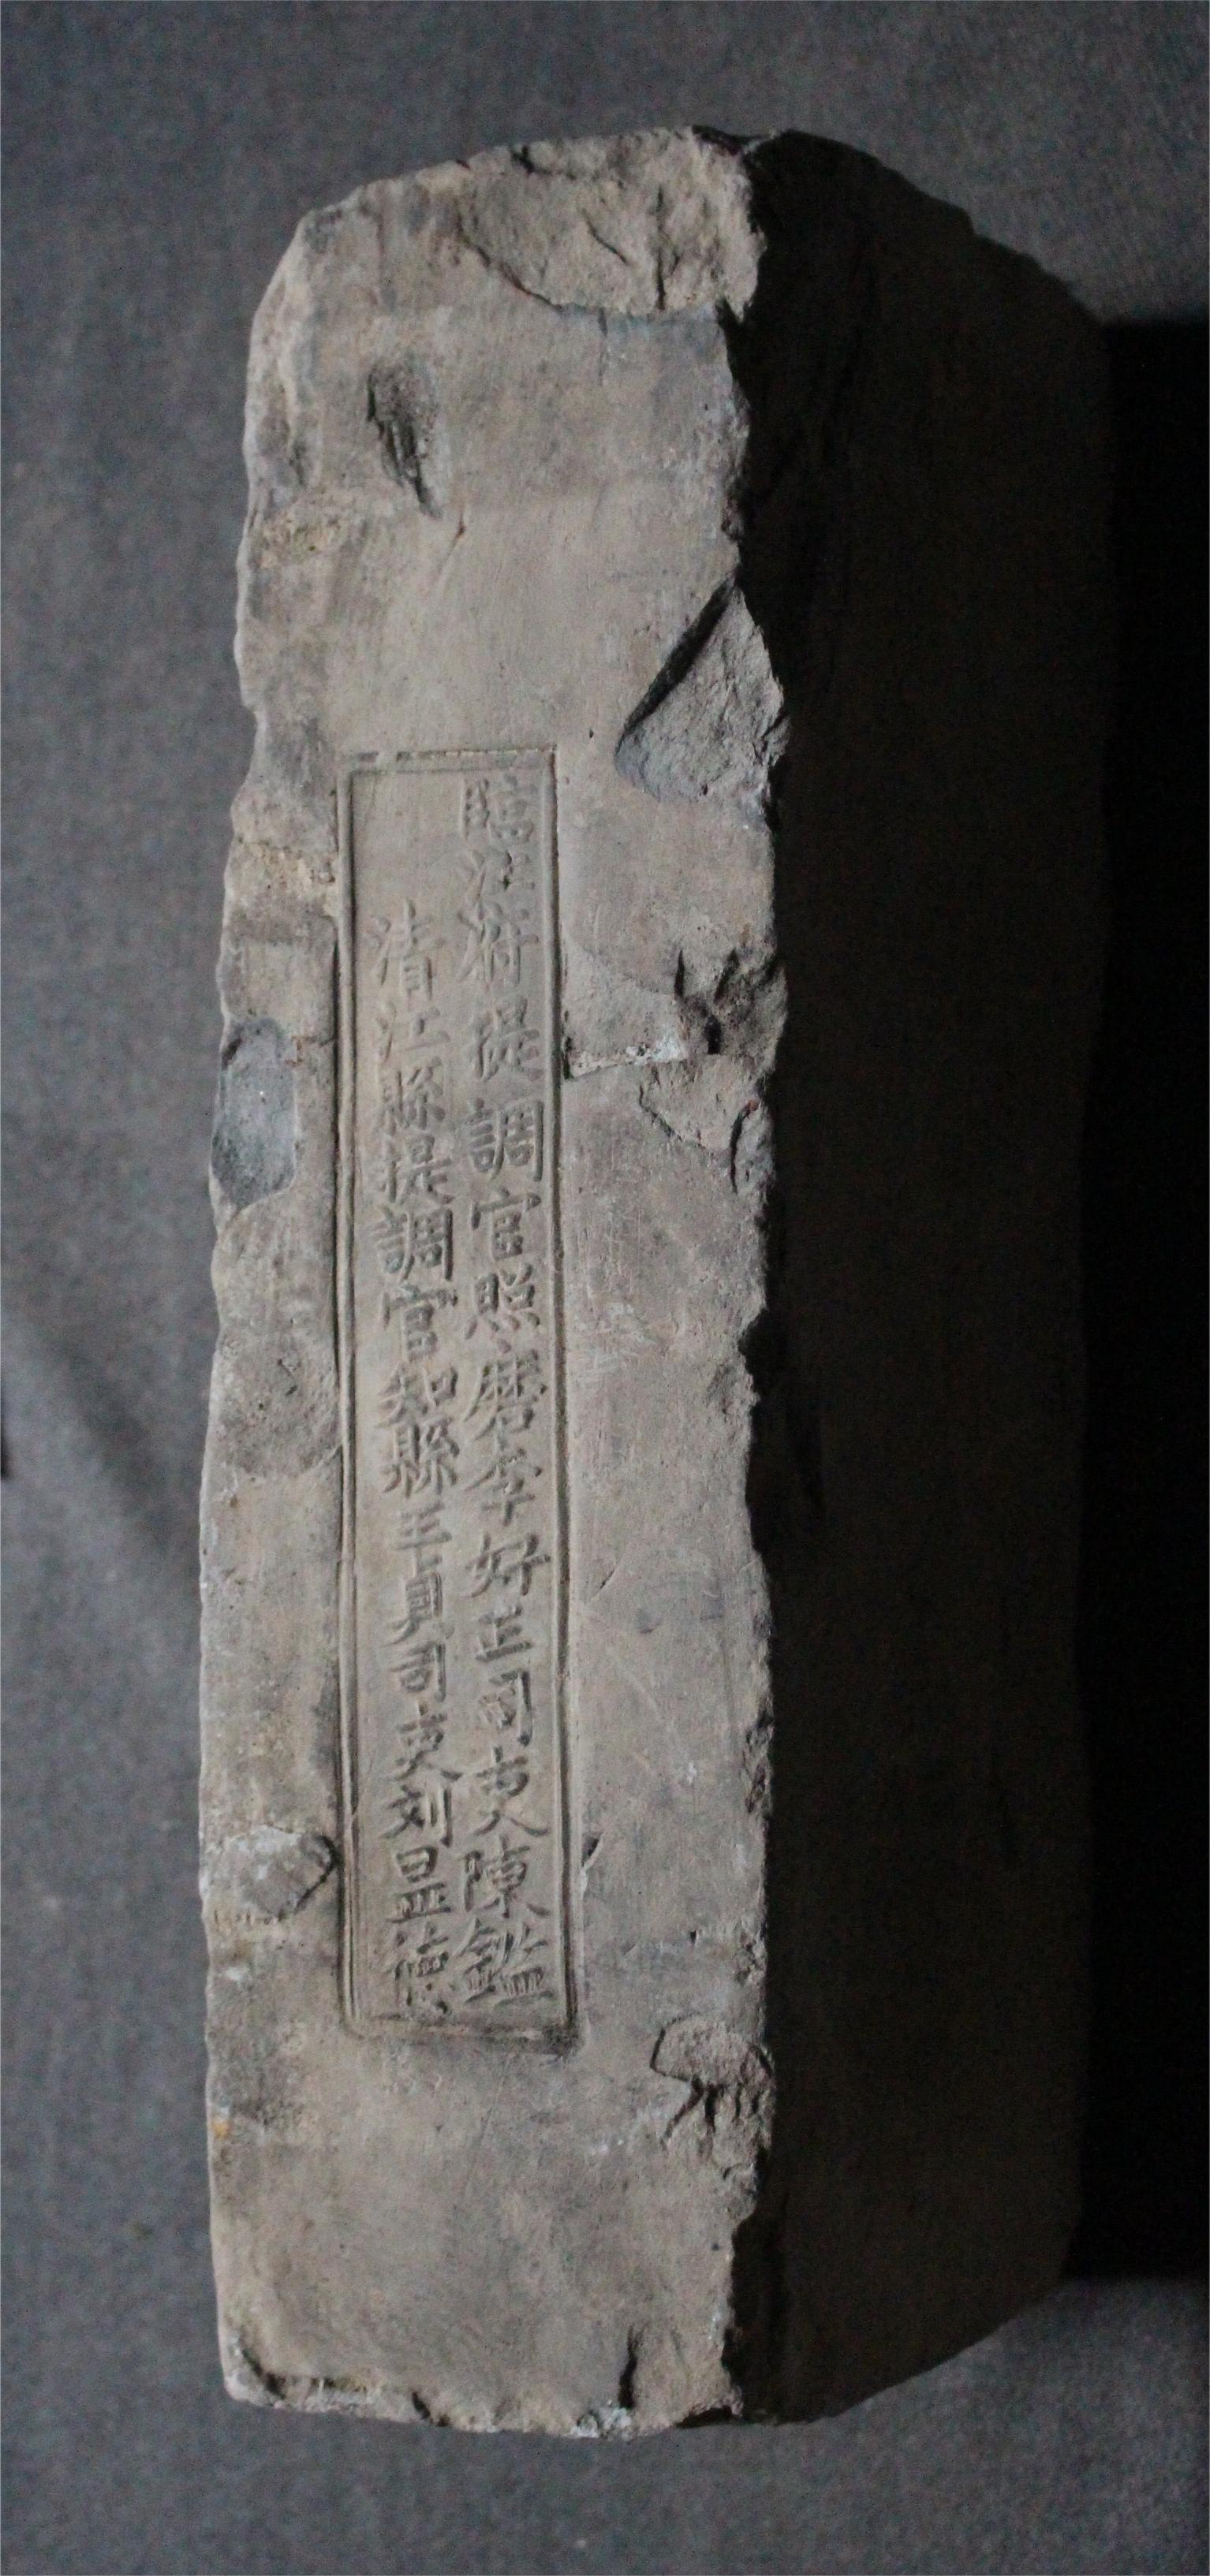 臨江府提調官照磨李好正司吏陳鑑
清江縣提調官知縣王員司吏刘显德